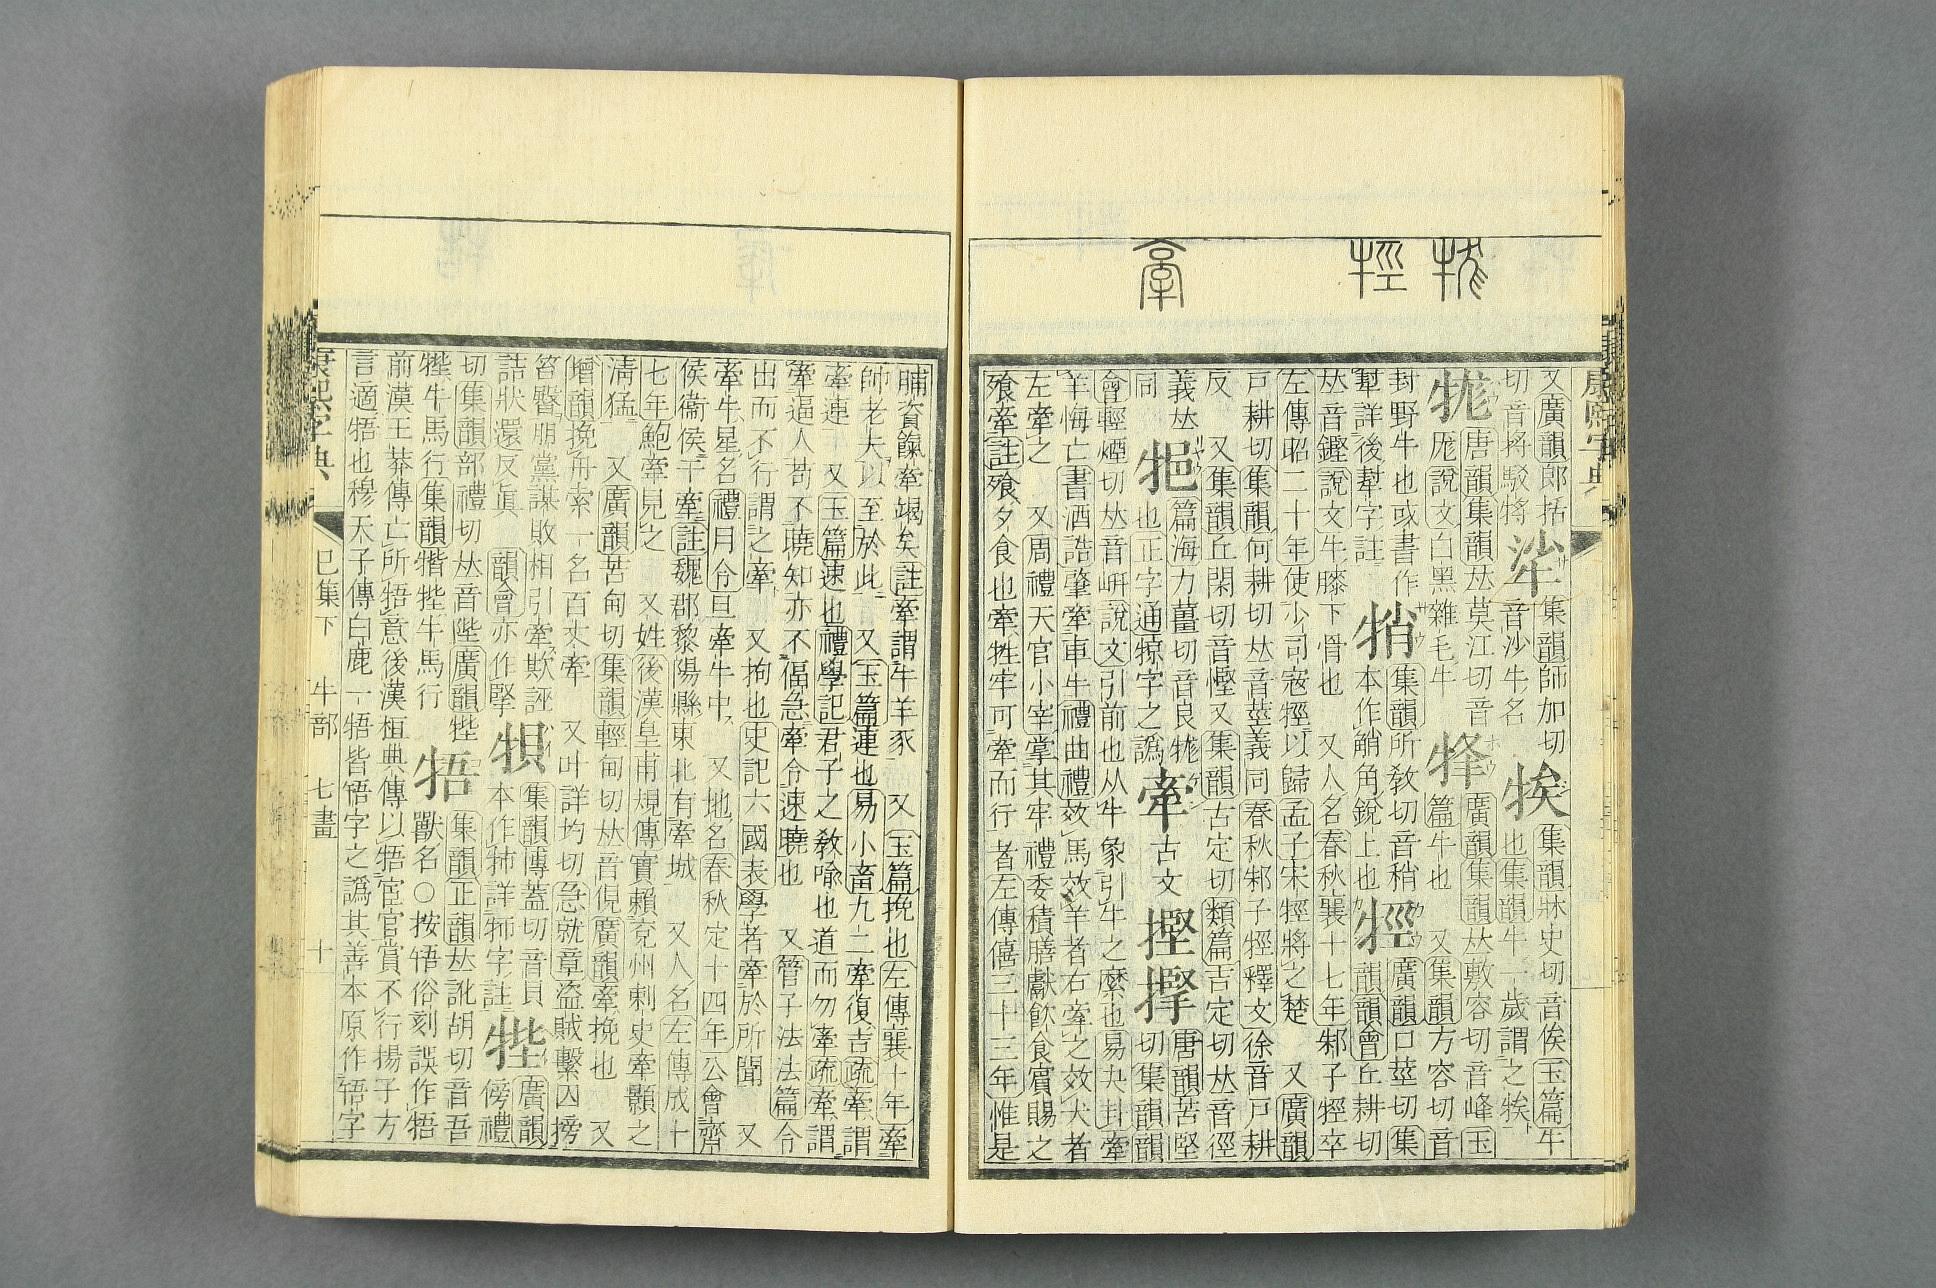 康熙字典
牻 牼 牽
又廣韻郎括
切音捋駁捋
乷
集韻師加切
音沙牛名
㹂
集韻牀史切音俟玉篇牛
也集韻牛一歲謂之㹂
牻
唐韻集韻𠀤莫江切音
厖說文白黑雜毛牛
㸼
廣韻集韻𠀤敷容切音峰玉
篇牛也 又集韻方容切音
封野牛也或書作
犎詳後犎字註
㹁
集韻所敎切音稍
本作䚫角銳上也
牼
廣韻口莖切集
韻韻會丘耕切
𠀤音鏗說文牛膝下骨也 又人名春秋襄十七年邾子牼卒
左傳昭二十年使少司寇牼以歸孟子宋牼將之楚 又廣韻
戸耕切集韻何耕切𠀤音莖義同春秋邾子牼釋文徐音戸耕
反 又集韻丘閑切音慳又集韻古定切類篇吉定切𠀤音徑
義𠀤
同
㹑
篇海力薑切音良牻
也正字通㹁字之譌
牽
古文
掔 㩃
唐韻苦堅
切集韻韻
會輕煙切𠀤音岍說文引前也从牛象引牛之縻也易夬卦牽
羊悔亡書酒誥肇牽車牛禮曲禮效馬效羊者右牽之效犬者
左牽之 又周禮天官小宰掌其牢禮委積膳獻飮食賓賜之
飧牽註飧夕食也牽牲牢可牽而行者左傳僖三十三年惟是
脯資餼牽竭矣註牽謂牛羊豕 又玉篇挽也左傳襄十年牽
帥老夫以至於此 又玉篇連也易小畜九二牽復吉疏牽謂
牽連 又玉篇速也禮學記君子之敎喩也道而勿牽疏牽謂
牽逼人苟不曉知亦不偪急牽令速曉也 又管子法法篇令
出而不行謂之牽 又拘也史記六國表學者牽於所聞 又
牽牛星名禮月令旦牽牛中 又地名春秋定十四年公會齊
侯衞侯于牽註魏郡黎陽縣東北有牽城 又人名左傳成十
七年鮑牽見之 又姓後漢皇甫規傳實賴兗州刺史牽顥之
淸猛 又廣韻苦甸切集韻輕甸切𠀤音俔廣韻牽挽也 又
增韻挽舟索一名百丈牽 又叶詳均切急就章盜賊繫囚搒
笞臀朋黨謀敗相引牽欺誣
詰狀還反眞 韻會亦作掔
㸽
集韻博蓋切音貝
本作㸬詳㸬字註
㹃
廣韻
傍禮
切集韻部禮切𠀤音陛廣韻㹃
㹃牛馬行集韻㸿㹃牛馬行
牾
集韻正韻𠀤訛胡切音吾
獸名○按牾俗刻誤作牾
前漢王莽傳亡所牾意後漢桓典傳以牾宦官賞不行揚子方
言適牾也穆天子傳白鹿一牾皆啎字之譌其善本原作啎字
康熙字典 巳集下 牛部 七畫 十